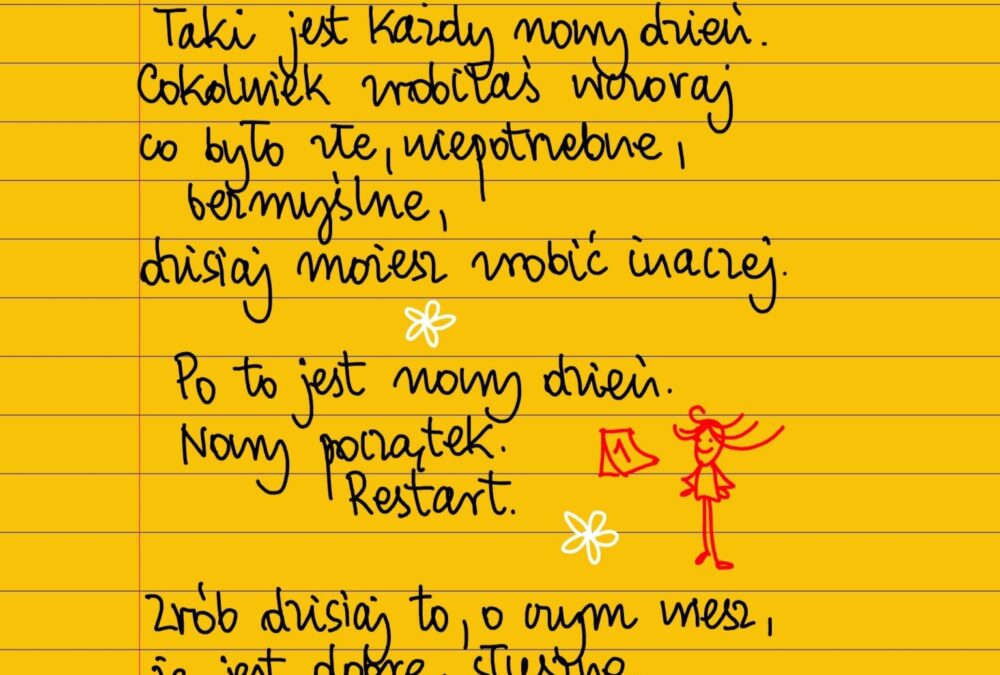 Taki jest każdy nowy dzień.
Cokolwiek zrobiłaś wczoraj
co było złe, niepotrzebne,
bezmyślne,
dzisiaj możesz zrobić inaczej.
Po to jest nowy dzień.
Nowy początek.
1
Restart.
Zrób dzisiaj to, o czym wiesz,
że jest dobre, słuszne